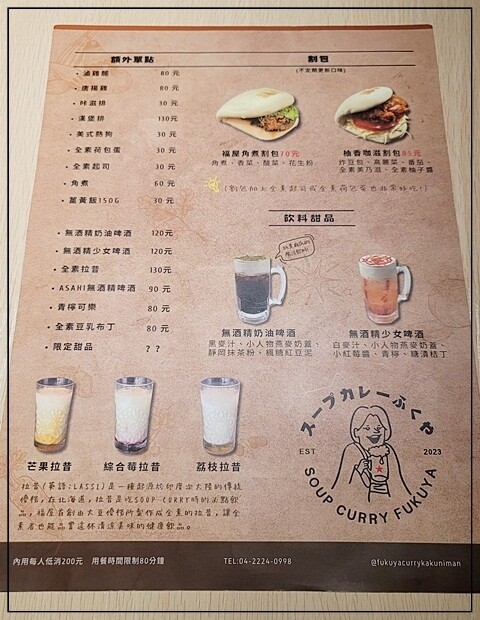 額外單點
滷雞腿 80 元
唐揚雞 80 元
咔滋排 30 元
漢堡排 130元
美式熱狗 30 元
全素荷包蛋 30 元
全素起司 30 元
角煮 60 元
薑黃飯150G 30 元
無酒精奶油啤酒 120元
無酒精少女啤酒 120元
全素拉昔 130元
ASAHI無酒精啤酒 90 元
青檸可樂 80 元
全素豆乳布丁 80 元
限定甜品 ? ?
割包
(不定期更新口味)
福屋角煮割包70元
角煮、香菜、酸菜、花生粉
柚香咖滋割包85元
炸豆包、高麗菜、番茄、
全素美乃滋、全素柚子醬
(割包加上全素起司或全素荷包蛋也非常好吃!)
飲料甜品
無酒精奶油啤酒
黑麥汁、小人物燕麥奶蓋、
靜岡抹茶粉、楓糖紅豆泥
無酒精少女啤酒
白麥汁、小人物燕麥奶蓋、
小紅莓醬、青檸、糖漬桔丁
芒果拉昔
綜合莓拉昔
荔枝拉昔
拉昔(英語:LASSI)是一種起源於印度次大陸的傳統
優格,在北海道,拉昔是吃SOUP CURRY時的必點飲
品,福屋首創由大豆優格所製作成全素的拉昔,讓全
素者也能品嘗這杯清涼美味的健康飲品。
スープカレーふくや
EST 2023
SOUP CURRY FUKUYA
內用每人低消200元 用餐時間限制80分鐘
TEL:04-2224-0998
@fukuyacurrykakuniman